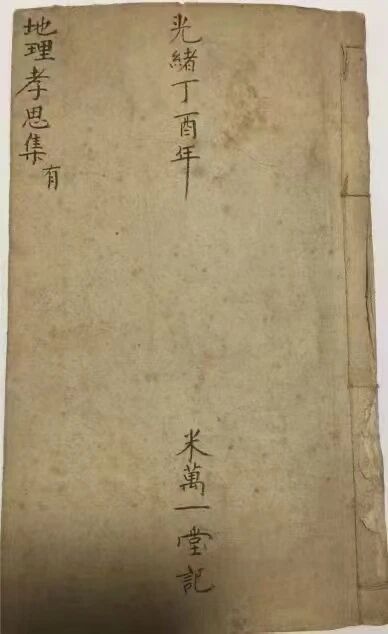 光緒丁酉年
米萬一堂記
地理孝思集
有